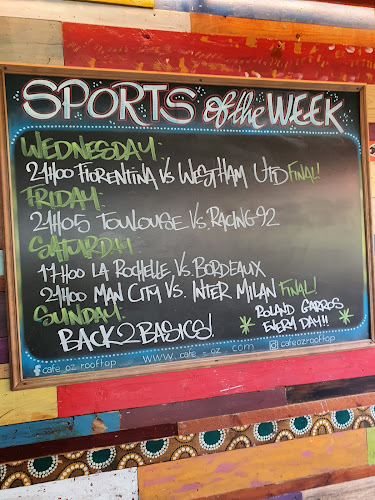 SPORTS of the WEEK
WEDNESDAY:
21H00 FIORENTINA VS WESTHAM UTD FINAL!
FRIDAY:
21H05 TOULOUSE VS. RACING-92
SATURDAY
17H00 LA ROCHELLE VS. BORDEAUX
21H00 MAN CITY VS. INTER MILAN FINAL!
SUNDAY:
BACK2BASICS!
ROLAND GARROS
EVERY DAY!!!
cafe_oz_rooftop
www.cafe-oz.com
cafeozrooftop